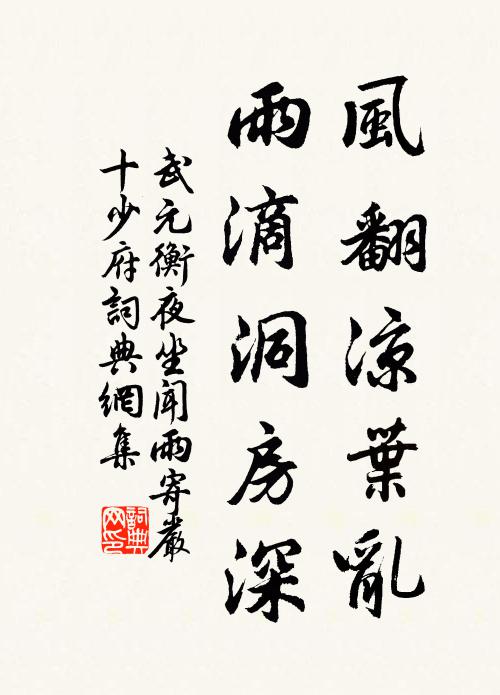 風翻涼葉亂
雨滴洞房深
武元衡夜坐聞雨寄嚴
十少府詞典網集
詞典
网印